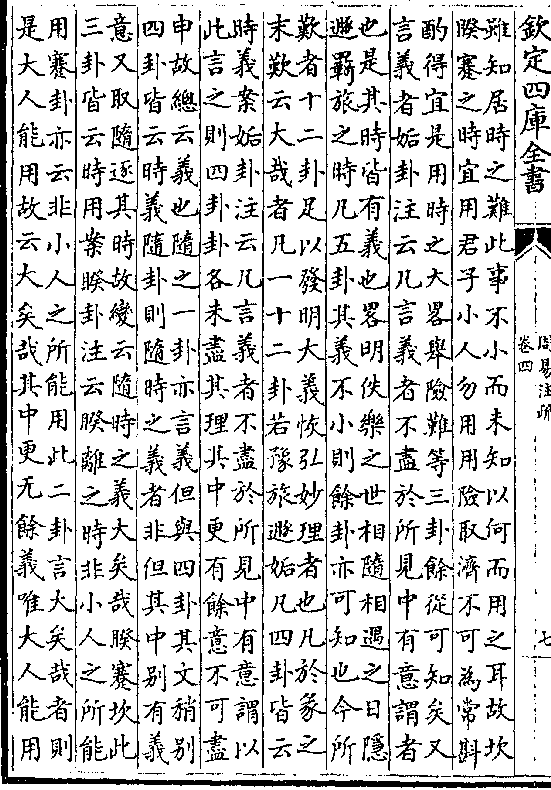 欽定四庫全書
周易注疏
卷四
七
雖知居時之難此事不小而未知以何而用之耳故坎
睽蹇之時宜用君子小人勿用用險取濟不可為常斟
酌得宜是用時之大畧舉險難等三卦餘從可知矣又
言義者姤卦注云凡言義者不盡於所見中有意謂者
也是其時皆有義也畧明佚樂之世相隨相遇之日隱
遯羇旅之時凡五卦其義不小則餘卦亦可知也今所
歎者十二卦足以發明大義恢弘妙理者也凡於彖之
末歎云大哉者凡一十二卦若豫旅遯姤凡四卦皆云
時義案姤卦注云凡言義者不盡於所見中有意謂以
此言之則四卦卦各未盡其理其中更有餘意不可盡
申故總云義也隨之一卦亦言義但與四卦其文稍别
四卦皆云時義隨卦則隨時之義者非但其中别有義
意又取隨逐其時故變云隨時之義大矣哉睽蹇坎此
三卦皆云時用案睽卦注云睽離之時非小人之所能
用蹇卦亦云非小人之所能用此二卦言大矣哉者則
是大人能用故云大矣哉其中更无餘義唯大人能用